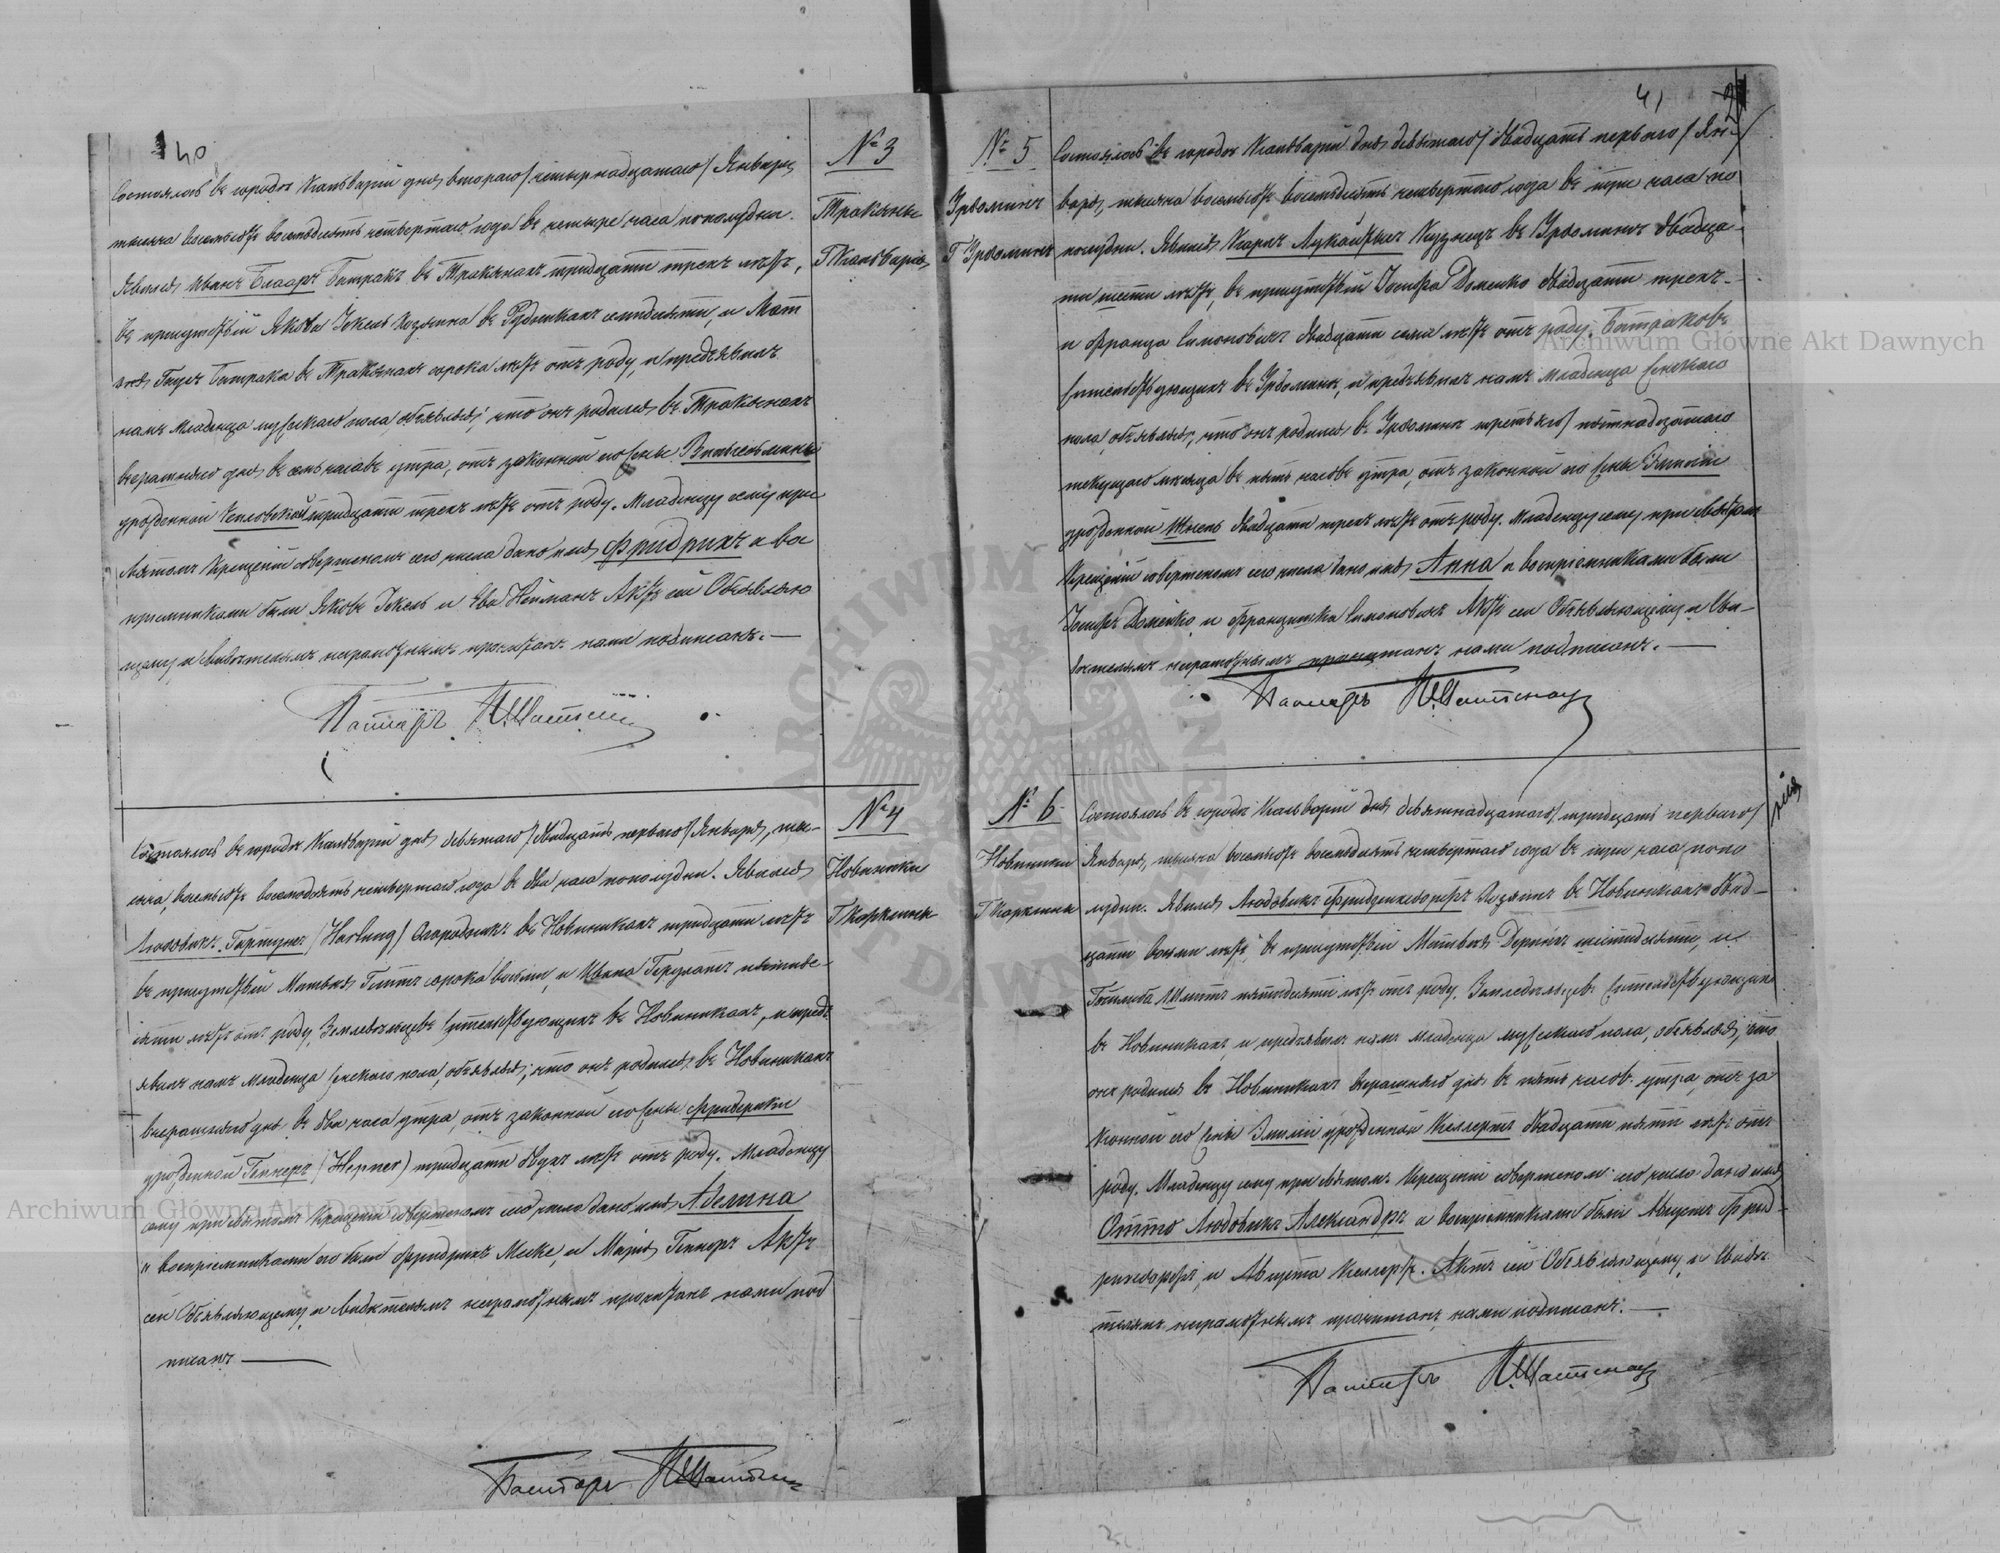 40
№ 3
Тракяны
Г Кальварія
Состоялось въ городѣ Кальваріи дня втораго/четырнадцатаго/ Января,
тысяча восемьсотъ восемьдесятъ четвертаго года въ четыре часа пополудни.
Явился Иванъ Батракъ въ Тракянахъ тридцати трехъ лѣтъ,
въ присутствіи Якова Хозяина въ семидесяти, и
Батрака въ Тракянахъ сорока лѣтъ отъ роду, и предъявилъ
намъ младенца мужескаго пола, объявляя; что онъ родился въ Тракянахъ
вчерашняго дня въ семь часовъ утра, отъ законной его жены Вильгельмины
урожденной тридцати трехъ лѣтъ отъ роду. Младенцу сему при
Святомъ Крещеніи совершеномъ сего числа дано имя Фридрихъ а вос
пріемниками были Яковъ и Ева Нейманъ Актъ сей Объявляю
щему и свидѣтелямъ неграмотнымъ прочитанъ нами подписанъ.—
Пасторъ
№ 4
Новиники
Г Карклины
Состоялось въ городѣ Кальваріи дня девятаго/двадцать перваго/Января, ты-
сяча, восемьсотъ восемьдесятъ четвертаго года въ два часа пополудни. Явился
Людовикъ Гартунгъ /Hartung/ Огородникъ въ Новиникахъ тридцати лѣтъ
въ присутствіи Матвея сорока восьми, и Ивана пятиде-
сяти лѣтъ отъ роду, Земледѣльцевъ жительствующихъ въ Новиникахъ, и предъ
явилъ намъ младенца женскаго пола, объявляя; что онъ родился въ Новиникахъ
вчерашняго дня въ два часа утра, отъ законной его жены Фридерики
урожденной Гепнеръ (Hepner) тридцати двухъ лѣтъ отъ роду. Младенцу
сему при святомъ Крещеніи совершеномъ сего числа дано имя Аделина
а воспріемниками его были Фридрихъ и Марія Гепнеръ Актъ
сей Объявляющему и свидѣтелямъ неграмотнымъ прочитанъ нами под
писанъ —
Пасторъ
41
№ 5
Урдоминъ
Г Урдоминъ
Состоялось въ городѣ Кальваріи дня девятаго/ двадцать перваго / Ян-/
варя, тысяча восемьсотъ восемьдесятъ четвертаго года въ три часа по
полудни. Явился Карлъ Кузнецъ въ Урдоминѣ двадца-
ти шести лѣтъ, въ присутствіи Іосифа Доменко двадцати трехъ-
и Франца Симоновичъ двадцати семи лѣтъ отъ роду. Батраковъ
жительствующихъ въ Урдоминѣ, и предъявилъ намъ младенца женскаго
пола, объявляя; что онъ родился въ Урдоминѣ третьяго/ пятнадцатаго
текущаго мѣсяца въ пять часовъ утра, отъ законной его жены Эмиліи
урожденной двадцати трехъ лѣтъ отъ роду. Младенцу сему при святомъ
Крещеніи совершеномъ сего числа дано имя Анна а воспріемниками были
Іосифъ Доменко и Францишка Симоновичъ Актъ сей Объявляющему и Сви-
дѣтелямъ неграмотнымъ прочитанъ нами подписанъ. —
Пасторъ
№ 6
Новиники
Г Карклины
Состоялось въ городѣ Кальваріи дня девятнадцатаго/тридцать перваго/
Января, тысяча восемьсотъ восемьдесятъ четвертаго года въ три часа попо
лудни. Явился Людовикъ Хозяинъ въ Новиникахъ двад-
цати восьми лѣтъ, въ присутствіи Матвея шестидесяти, и
Готлиба Шмитъ пятидесяти лѣтъ отъ роду. Земледѣльцевъ жительствующихъ
въ Новиникахъ, и предъявилъ намъ младенца мужескаго пола, объявляя; что
онъ родился въ Новиникахъ вчерашняго дня въ пять часовъ утра, отъ за
конной его жены Эмиліи урожденной Келлертъ двадцати пяти лѣтъ отъ
роду. Младенцу сему при святомъ Крещеніи совершеномъ сего числа дано имя
Отто Людовикъ Александръ а воспріемниками были Августъ
и Августа Актъ сей Объявляющему, и Свидѣ
телямъ неграмотнымъ прочитанъ нами подписанъ. —
Пасторъ
Archiwum Główne Akt Dawnych
Archiwum Główne Akt Dawnych